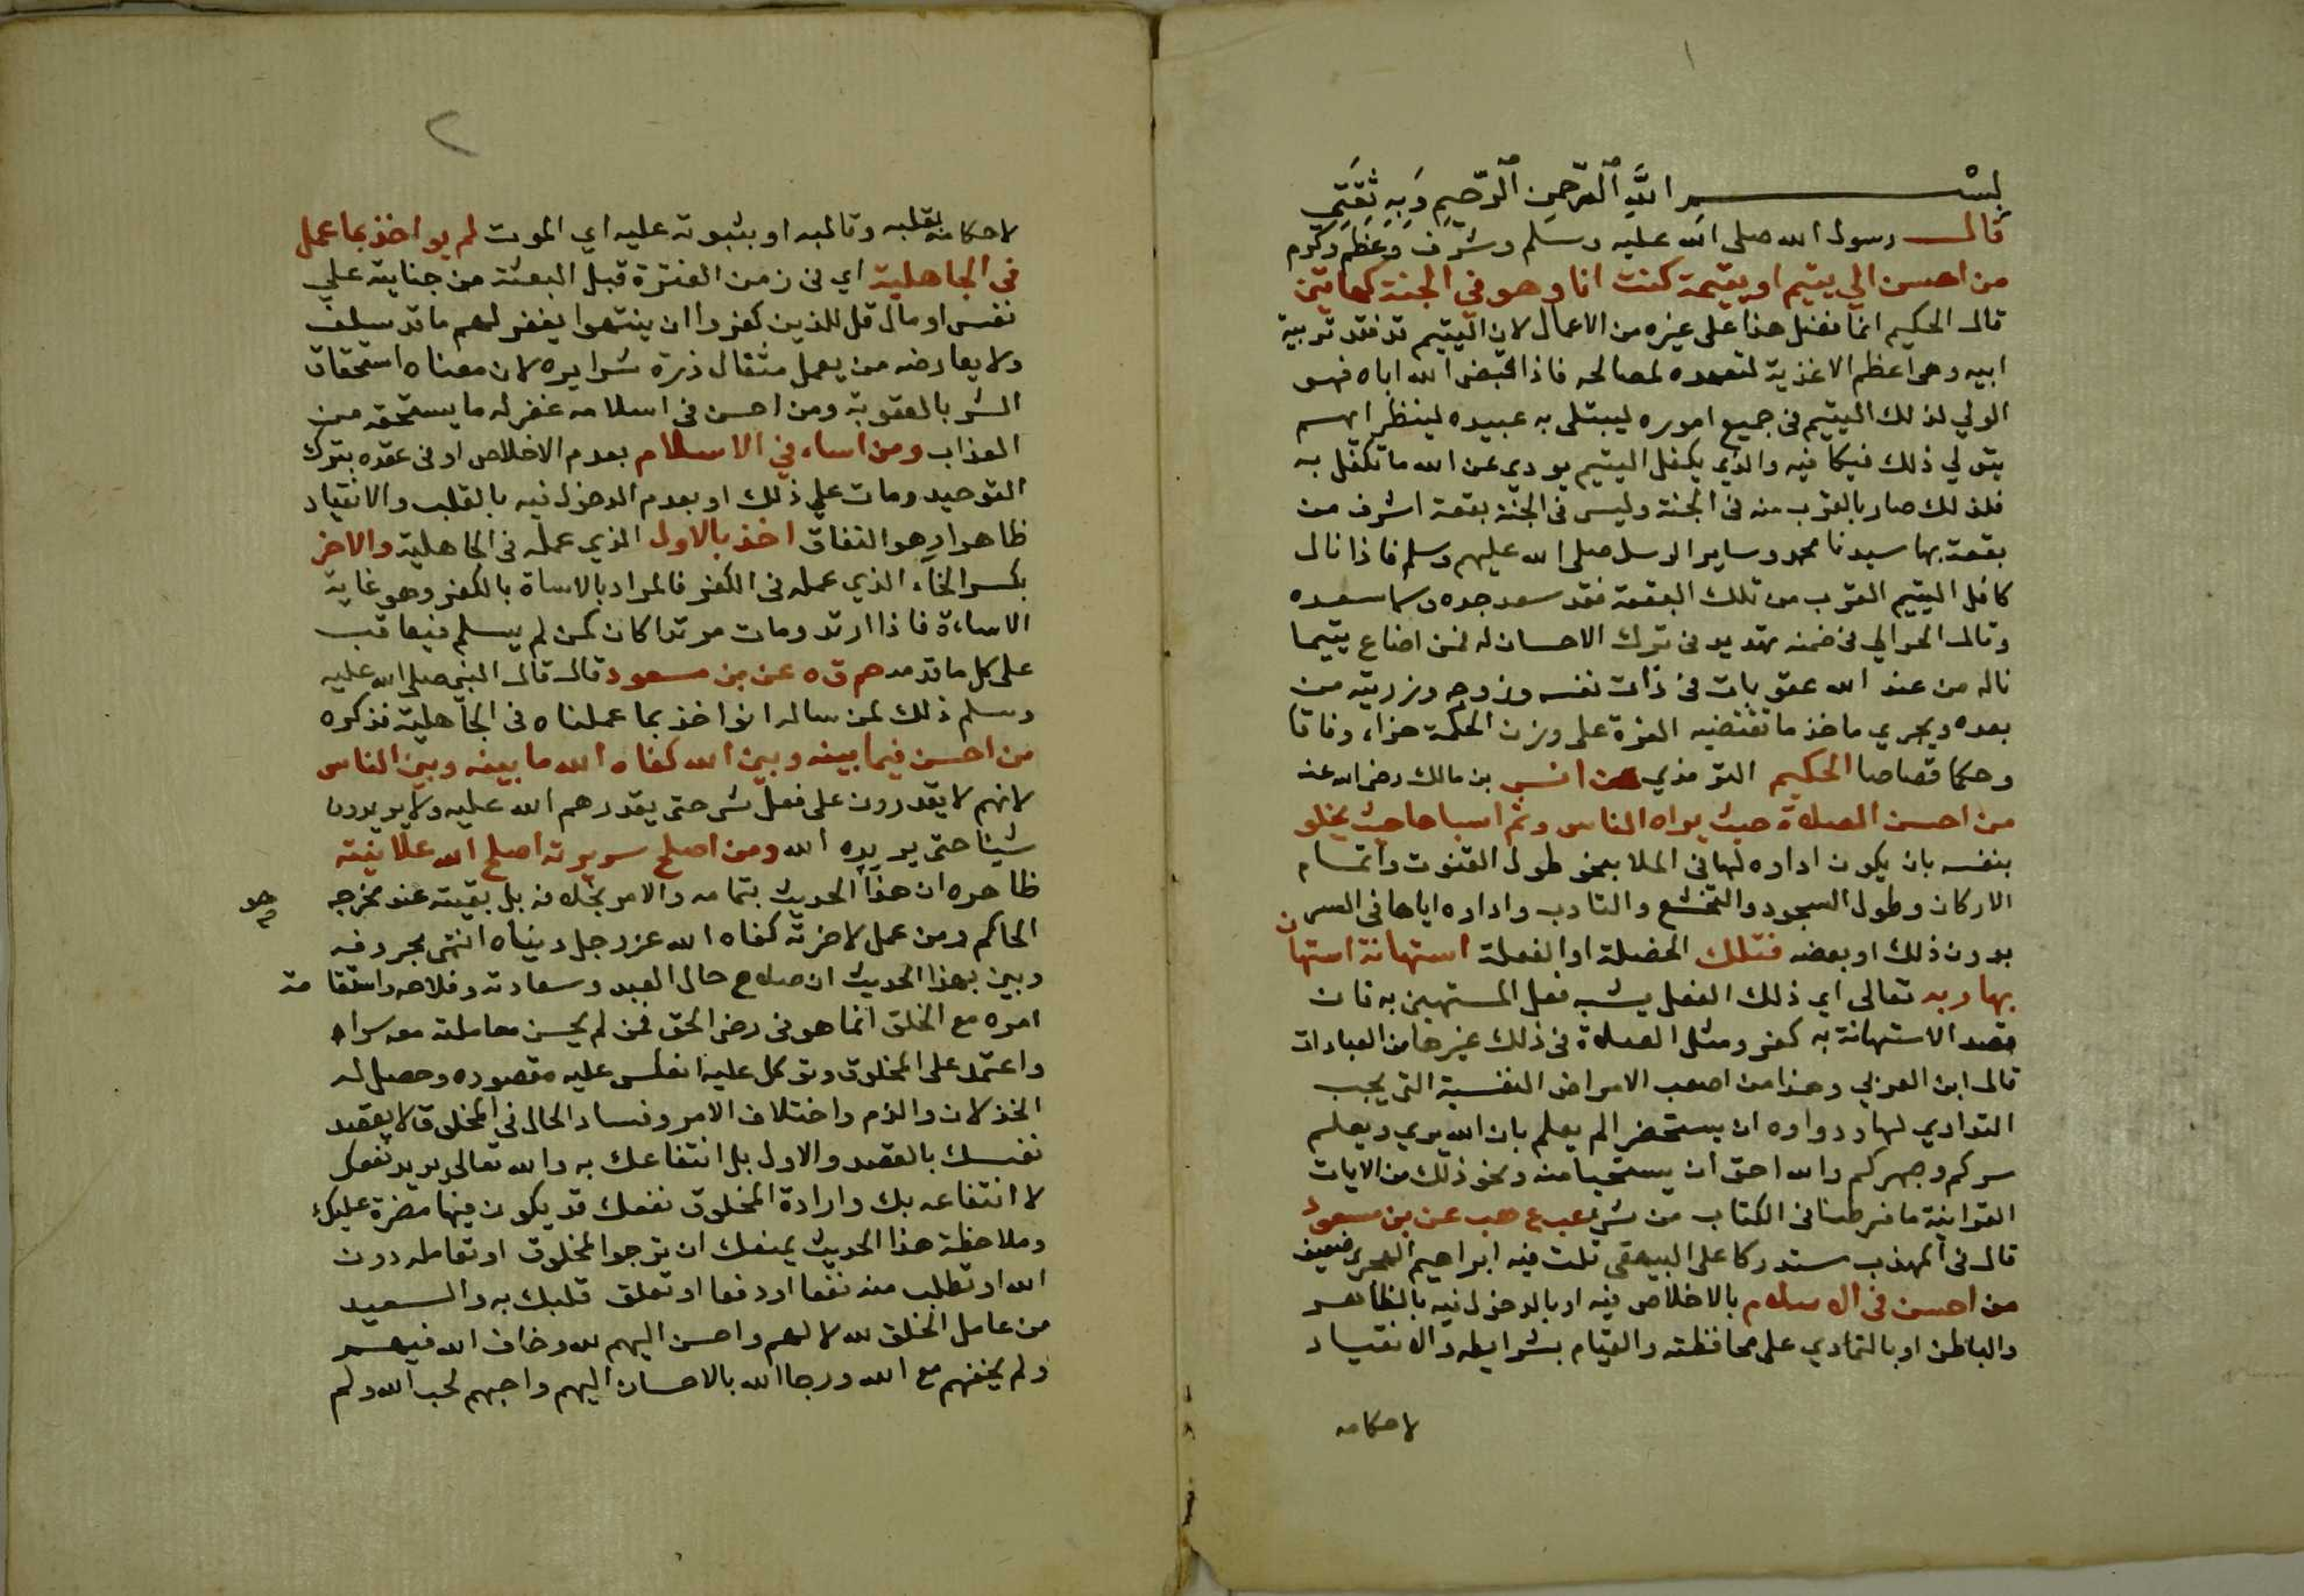 ١
بسم الله الرحمن الرحيم وبه ثقتي
قال رسول الله صلى الله عليه وسلم وشرف وعظم وكرم
من احسن الي يتيم او يتيمة كنت انا وهو في الجنة كهاتين
قال الحكيم انما فضل هذا على غيره من الاعمال لان اليتيم قد فقد تربية
ابيه وهي اعظم الاغذية لتعهده لمصالحه فاذا قبض الله اباه فهو
الولي لذلك اليتيم في جميع اموره ليبتلى به عبيده لينظر ايهم
يتولي ذلك فيكافيه والذي يكفل اليتيم يودي عن الله ما تكفل به
فلذلك صار بالقرب منه في الجنة وليس في الجنة بقعة اشرف من
بقعة بها سيدنا محمد وساير الرسل صلى الله عليهم وسلم فاذا نال
كافل اليتيم القرب من تلك البقعة فقد سعد جده وسما سعده
وقال الحرالي في ضمنه تهديد في ترك الاحسان له فمن اضاع يتيما
ناله من عند الله عقوبات في ذات نفسه وزوجه وذريته من
بعده ويجري ماخذ ما تقتضيه العزة على وزن الحكمة جزاء وفاقا
وحكما قصاصا الحكيم الترمذي عن انس بن مالك رضى الله عنه
من احسن الصلاة حيث يراه الناس وثم اساها حيث يخلو
بنفسه بان يكون اداوه لها في الملا بنحو طول القنوت واتمام
الاركان وطول السجود والتخشع والتادب واداوه اياها في السر
بدون ذلك او بعضه فتلك الخصلة او الفعلة استهانة استهان
بها ربه تعالى اي ذلك الفعل يشبه فعل المستهين به فان
قصد الاستهانة به كفر ومثل الصلاة في ذلك غيرها من العبادات
قال ابن العربي وهذا من اصعب الامراض النفسية التي يجب
التداوي لها ودواوه ان يستحضر الم يعلم بان الله يري ويعلم
سركم وجهركم والله احق ان يستحيا منه ونحو ذلك من الايات
القرانية ما فرطنا في الكتاب من شي عب ع هب عن بن مسعود
قال في المهذب مستدركا على البيهقي قلت فيه ابراهيم الهجري ضعيف
من احسن في الاسلام بالاخلاص فيه او بالدخول فيه بالظاهر
والباطن او بالتمادي على محافظته والقيام بشرايطه والانقياد
لاحكامه
٢
لاحكامه بقلبه وقالبه او بثبوته عليه اي الموت لم يواخذ بما عمل
في الجاهلية اي في زمن الفترة قبل البعثة من جنايته علي
نفس او مال قل للذين كفروا ان ينتهوا يغفر لهم ما قد سلف
ولا يعارضه من يعمل مثقال ذرة شرا يره لان معناه استحقاق
الشر بالعقوبة ومن احسن في اسلامه غفر له ما يستحقه من
العذاب ومن اساء في الاسلام بعدم الاخلاص او في عقده بترك
التوحيد ومات علي ذلك او بعدم الدخول فيه بالقلب والانقياد
ظاهرا وهو النفاق اخذ بالاول الذي عمله في الجاهلية والاخر
بكسر الخاء الذي عمله في الكفر فالمراد بالاساة بالكفر وهو غاية
الاساءة فاذا ارتد ومات مرتدا كان كمن لم يسلم فيعاقب
على كل ما قدمه حم ق ه عن بن مسعود قال قال النبي صلى الله عليه
وسلم ذلك لمن ساله انواخذ بما عملناه في الجاهلية فذكره
من احسن فيما بينه وبين الله كفاه الله ما بينه وبين الناس
لانهم لا يقدرون على فعل شر حتى يقدرهم الله عليه ولا يريدون
شيئا حتى يريده الله ومن اصلح سريرته اصلح الله علانيته
ظاهره ان هذا الحديث بتمامه والامر بخلافه بل بقيته عند مخرجه
الحاكم ومن عمل لاخرته كفاه الله عز وجل دنياه انتهى بحروفه
وبين بهذا الحديث ان صلاح حال العبد وسعادته وفلاحه واستقامة
امره مع الخلق انما هو في رضى الحق فمن لم يحسن معاملته معه سرا
واعتمد على المخلوق وتوكل عليه انعكس عليه مقصوده وحصل له
الخذلان والذم واختلاف الامر وفساد الحال في المخلوق لا يقصد
نفسك بالقصد والاول بل انتفاعك به والله تعالى يريد نفعك
لا انتفاعه بك وارادة المخلوق نفعك قد يكون فيها مضرة عليك
وملاحظة هذا الحديث يمنعك ان ترجوا المخلوق او تعامله دون
الله او تطلب منه نفعا او دفعا او تعلق قلبك به والسعيد
من عامل الخلق لله لا لهم واحسن اليهم لله وخاف الله فيهم
ولم يخفهم مع الله ورجا الله بالاحسان اليهم واحبهم لحب الله ولم